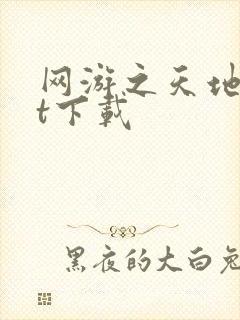 网游之天地
t下载
黑夜的大白兔